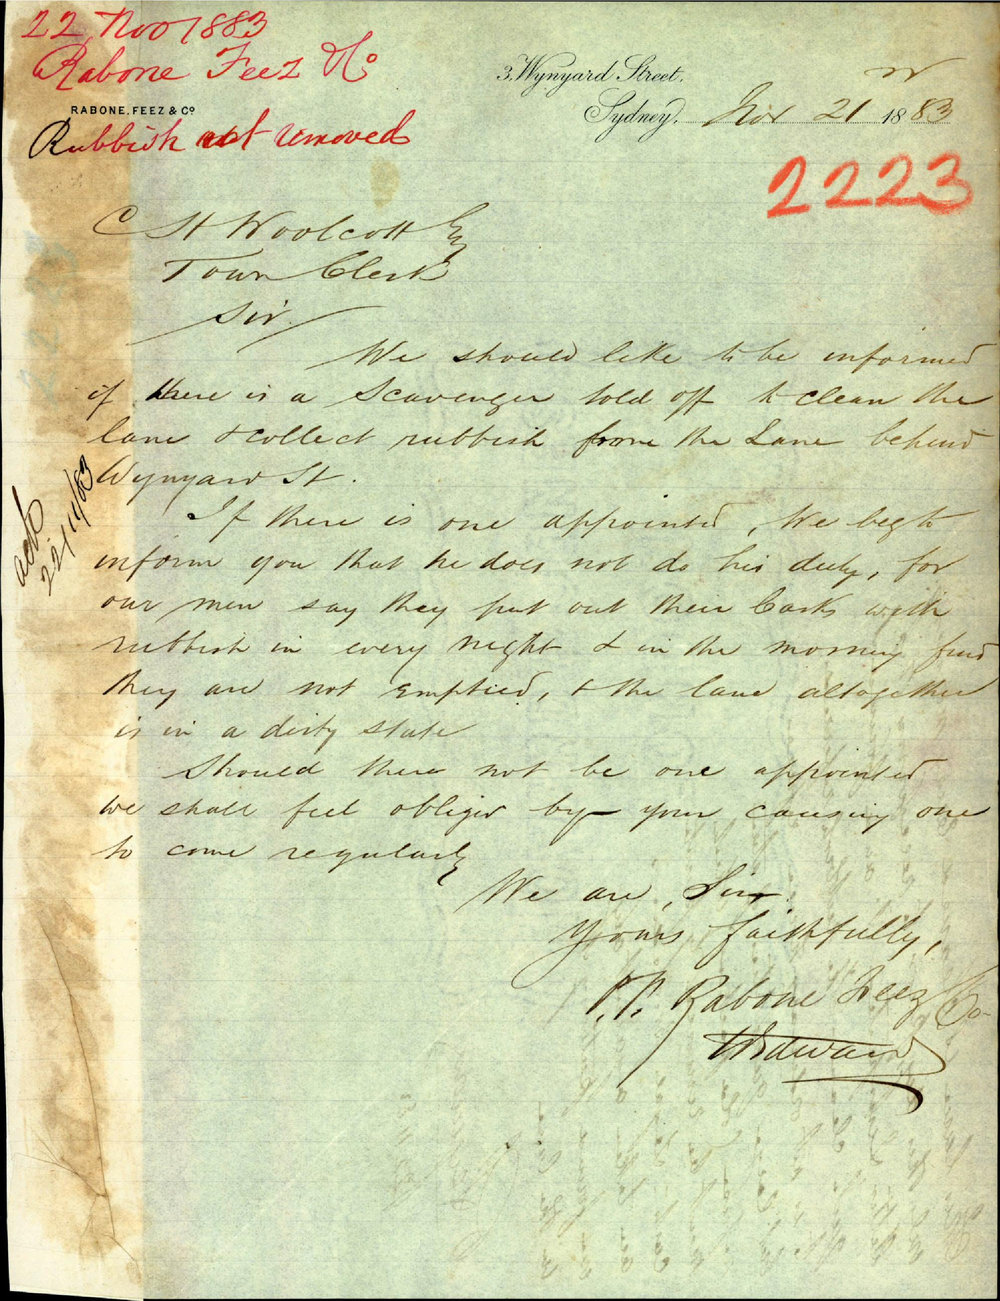 22 Nov 1883
Rabone Feez & Co
RABONE, FEEZ & Co
Rubbish not removed
3, Wynyard Street,
Sydney, Nov 21 1883
2223
C H Woolcott Esq
Town Clerk
Sir,
We should like to be informed
if there is a Scavenger told off to clean the
lane & collect rubbish from the Lane behind
Wynyard St.
ack
22/11/83
If there is one appointed, We beg to
inform you that he does not do his duty, for
our men say they put out their Casks with
rubbish in every night & in the morning find
they are not emptied, & the lane altogether
is in a dirty state
Should there not be one appointed
we shall feel obliged by your causing one
to come regularly
We are, Sir
Yours faithfully,
P.P. Rabone Feez & Co